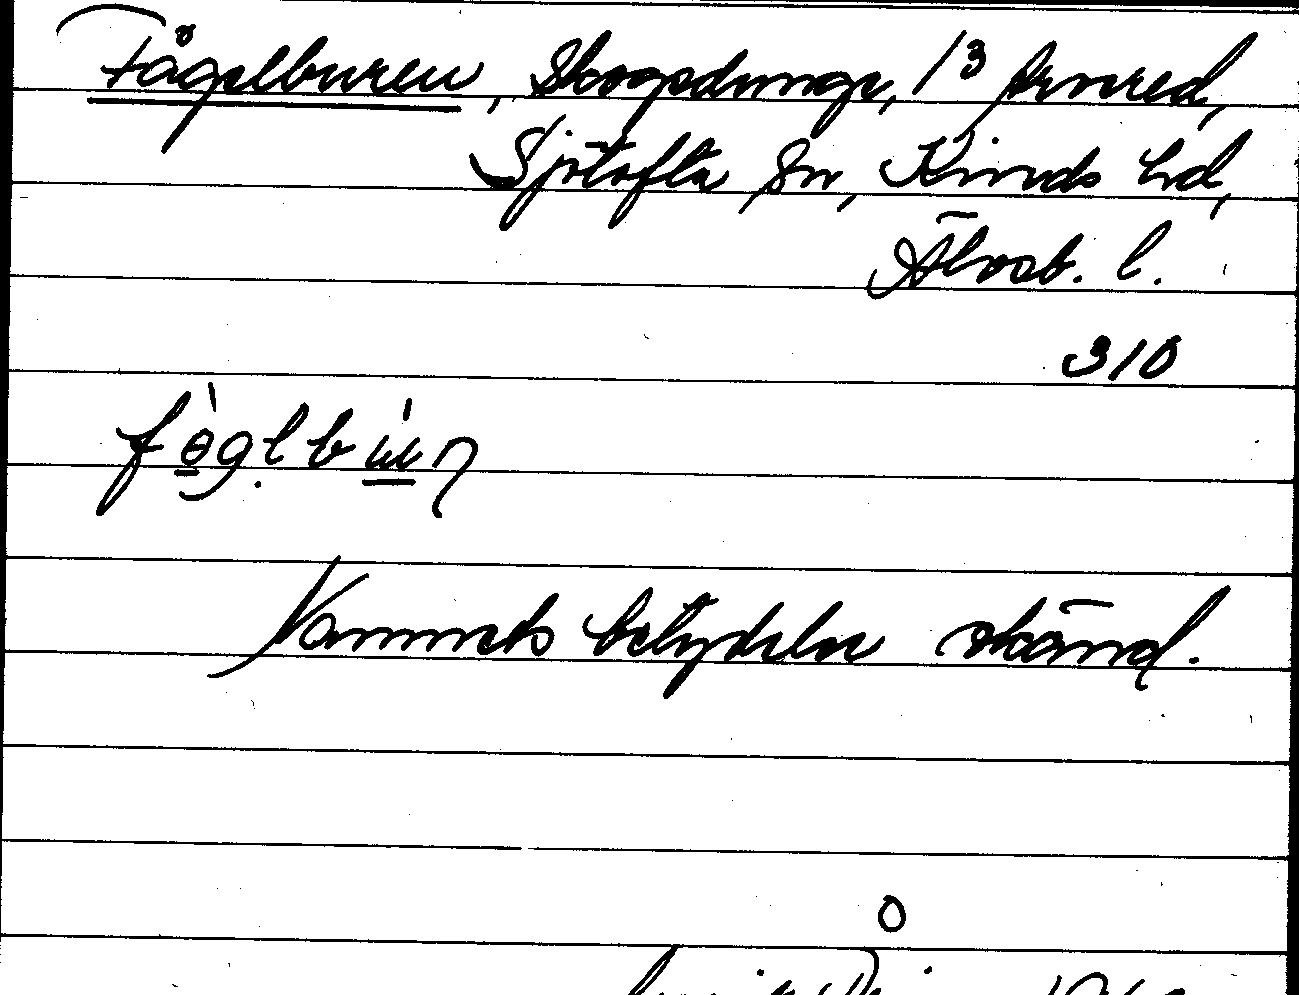 Fågelburen, Skogsdunge, 1/3
Sjötofta sn, Kinds hd,
Älvsb. l.
310
Namnets betydelse okänd.